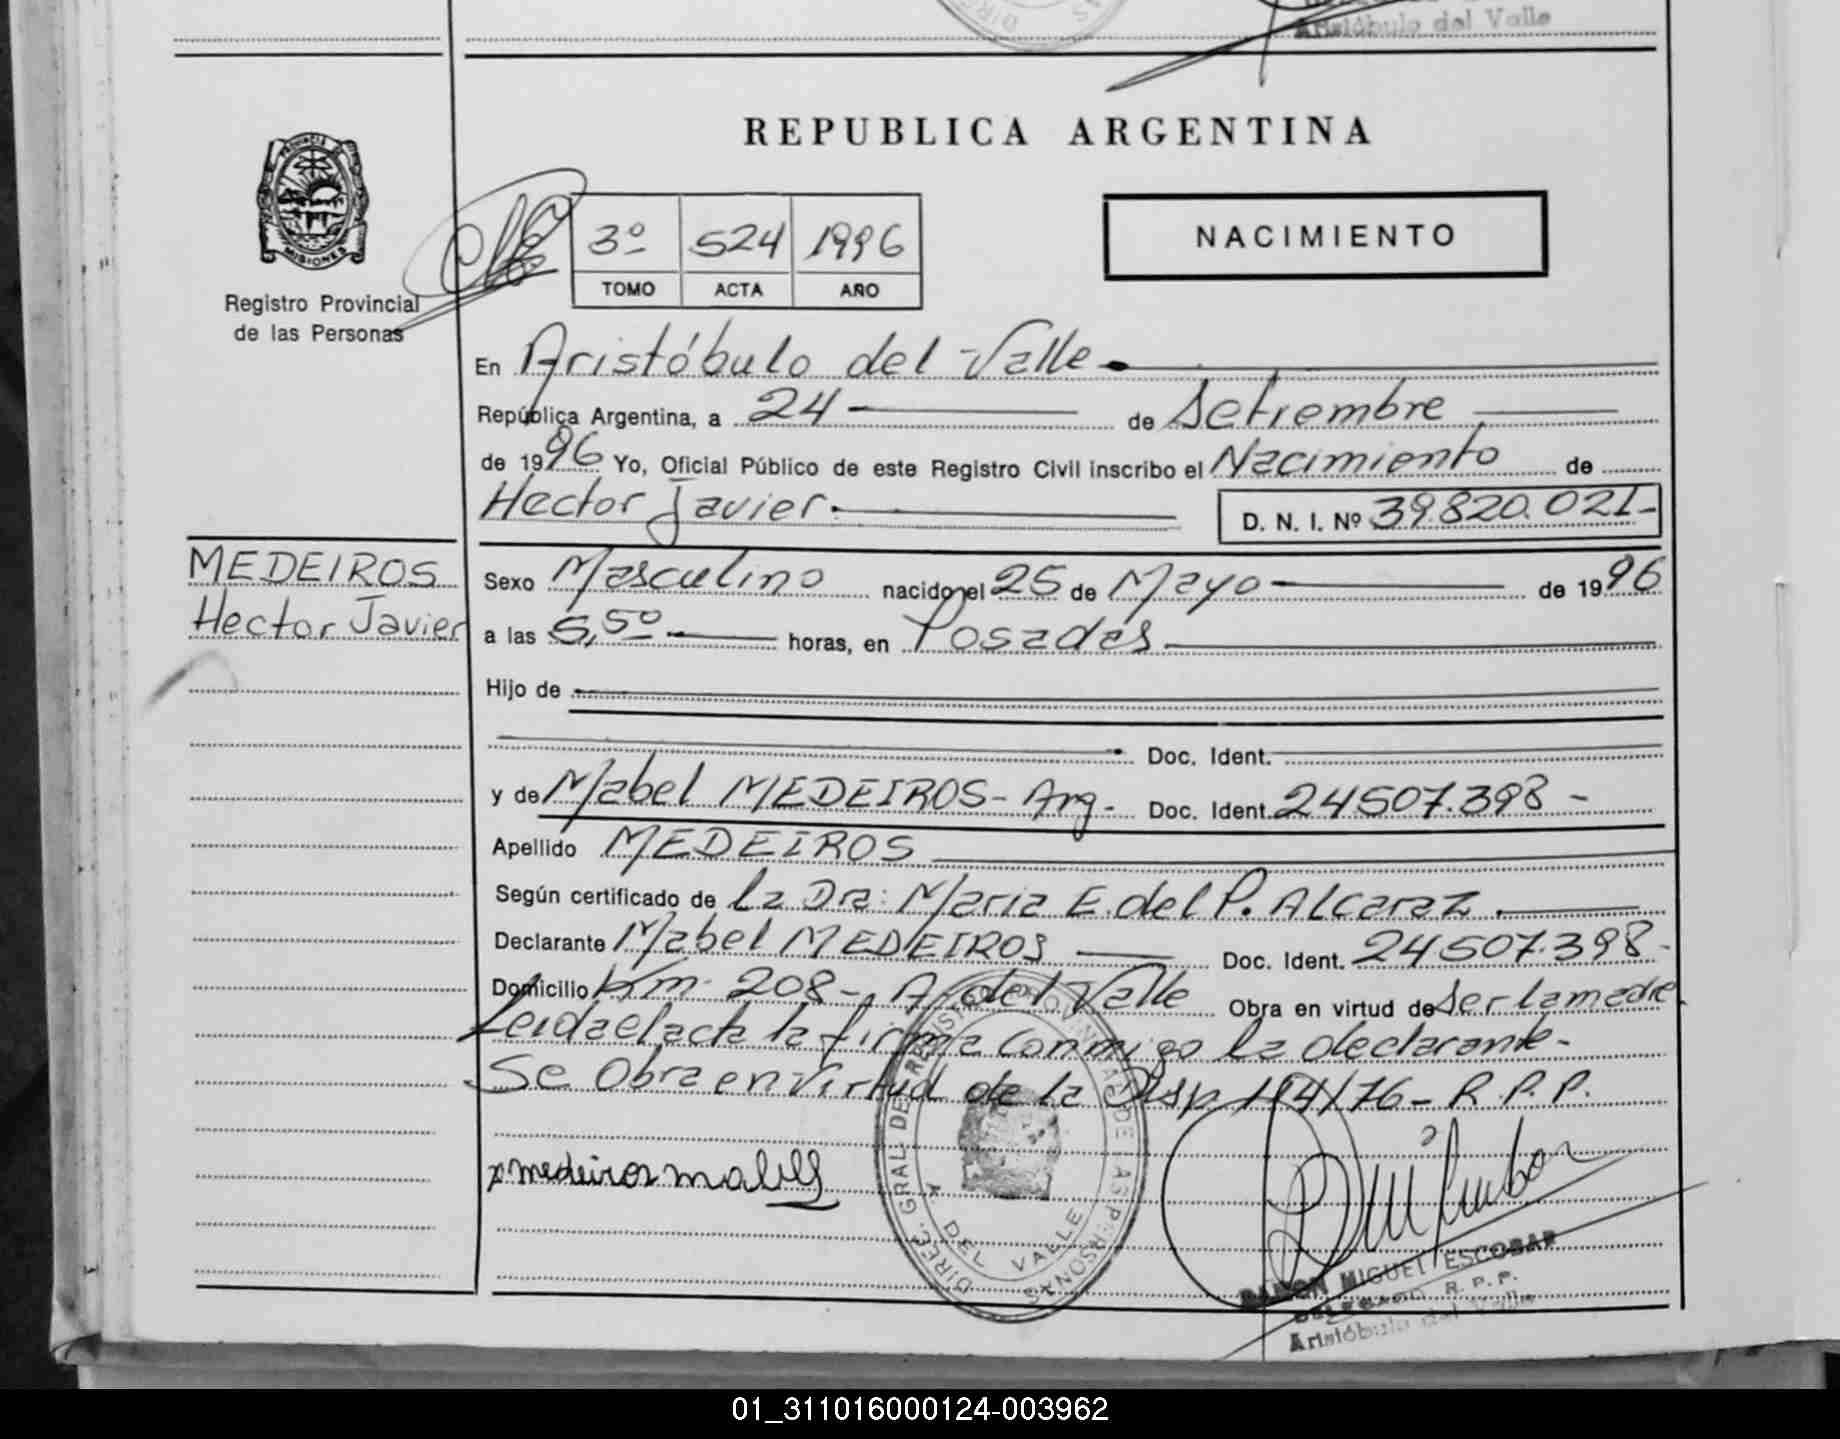 Aristóbulo del Valle
REPUBLICA ARGENTINA
PROVINCIA DE
MISIONES
Registro Provincial
de las Personas
3º 524 1996
TOMO ACTA AÑO
NACIMIENTO
En Aristóbulo del Valle
República Argentina, a 24 de Setiembre
de 1996 Yo, Oficial Público de este Registro Civil inscribo el Nacimiento de
Hector Javier. D. N. I. Nº 39.820.021-
MEDEIROS
Hector Javier
Sexo Masculino nacido el 25 de Mayo de 1996
a las 5,50 horas, en Posadas
Hijo de
Doc. Ident.
y de Mabel MEDEIROS- Arg- Doc. Ident. 24507.398 -
Apellido MEDEIROS
Según certificado de la Dra: Maria E. del P. Alcaraz.
Declarante Mabel MEDEIROS Doc. Ident. 24507.398-
Domicilio Km. 208-, A. del Valle Obra en virtud de ser la madre
Leida el acta la firma conmigo la declarante-
Se Obra en virtud de la Disp 114/76- R.P.P.
x medeiros mabel
DIREC. GRAL. DE REGISTRO PROVINCIAL DE LAS PERSONAS
DEL VALLE
RAMON MIGUEL ESCOBAR
DELEGADO R. P. P.
Aristóbulo del Valle
01_311016000124-003962